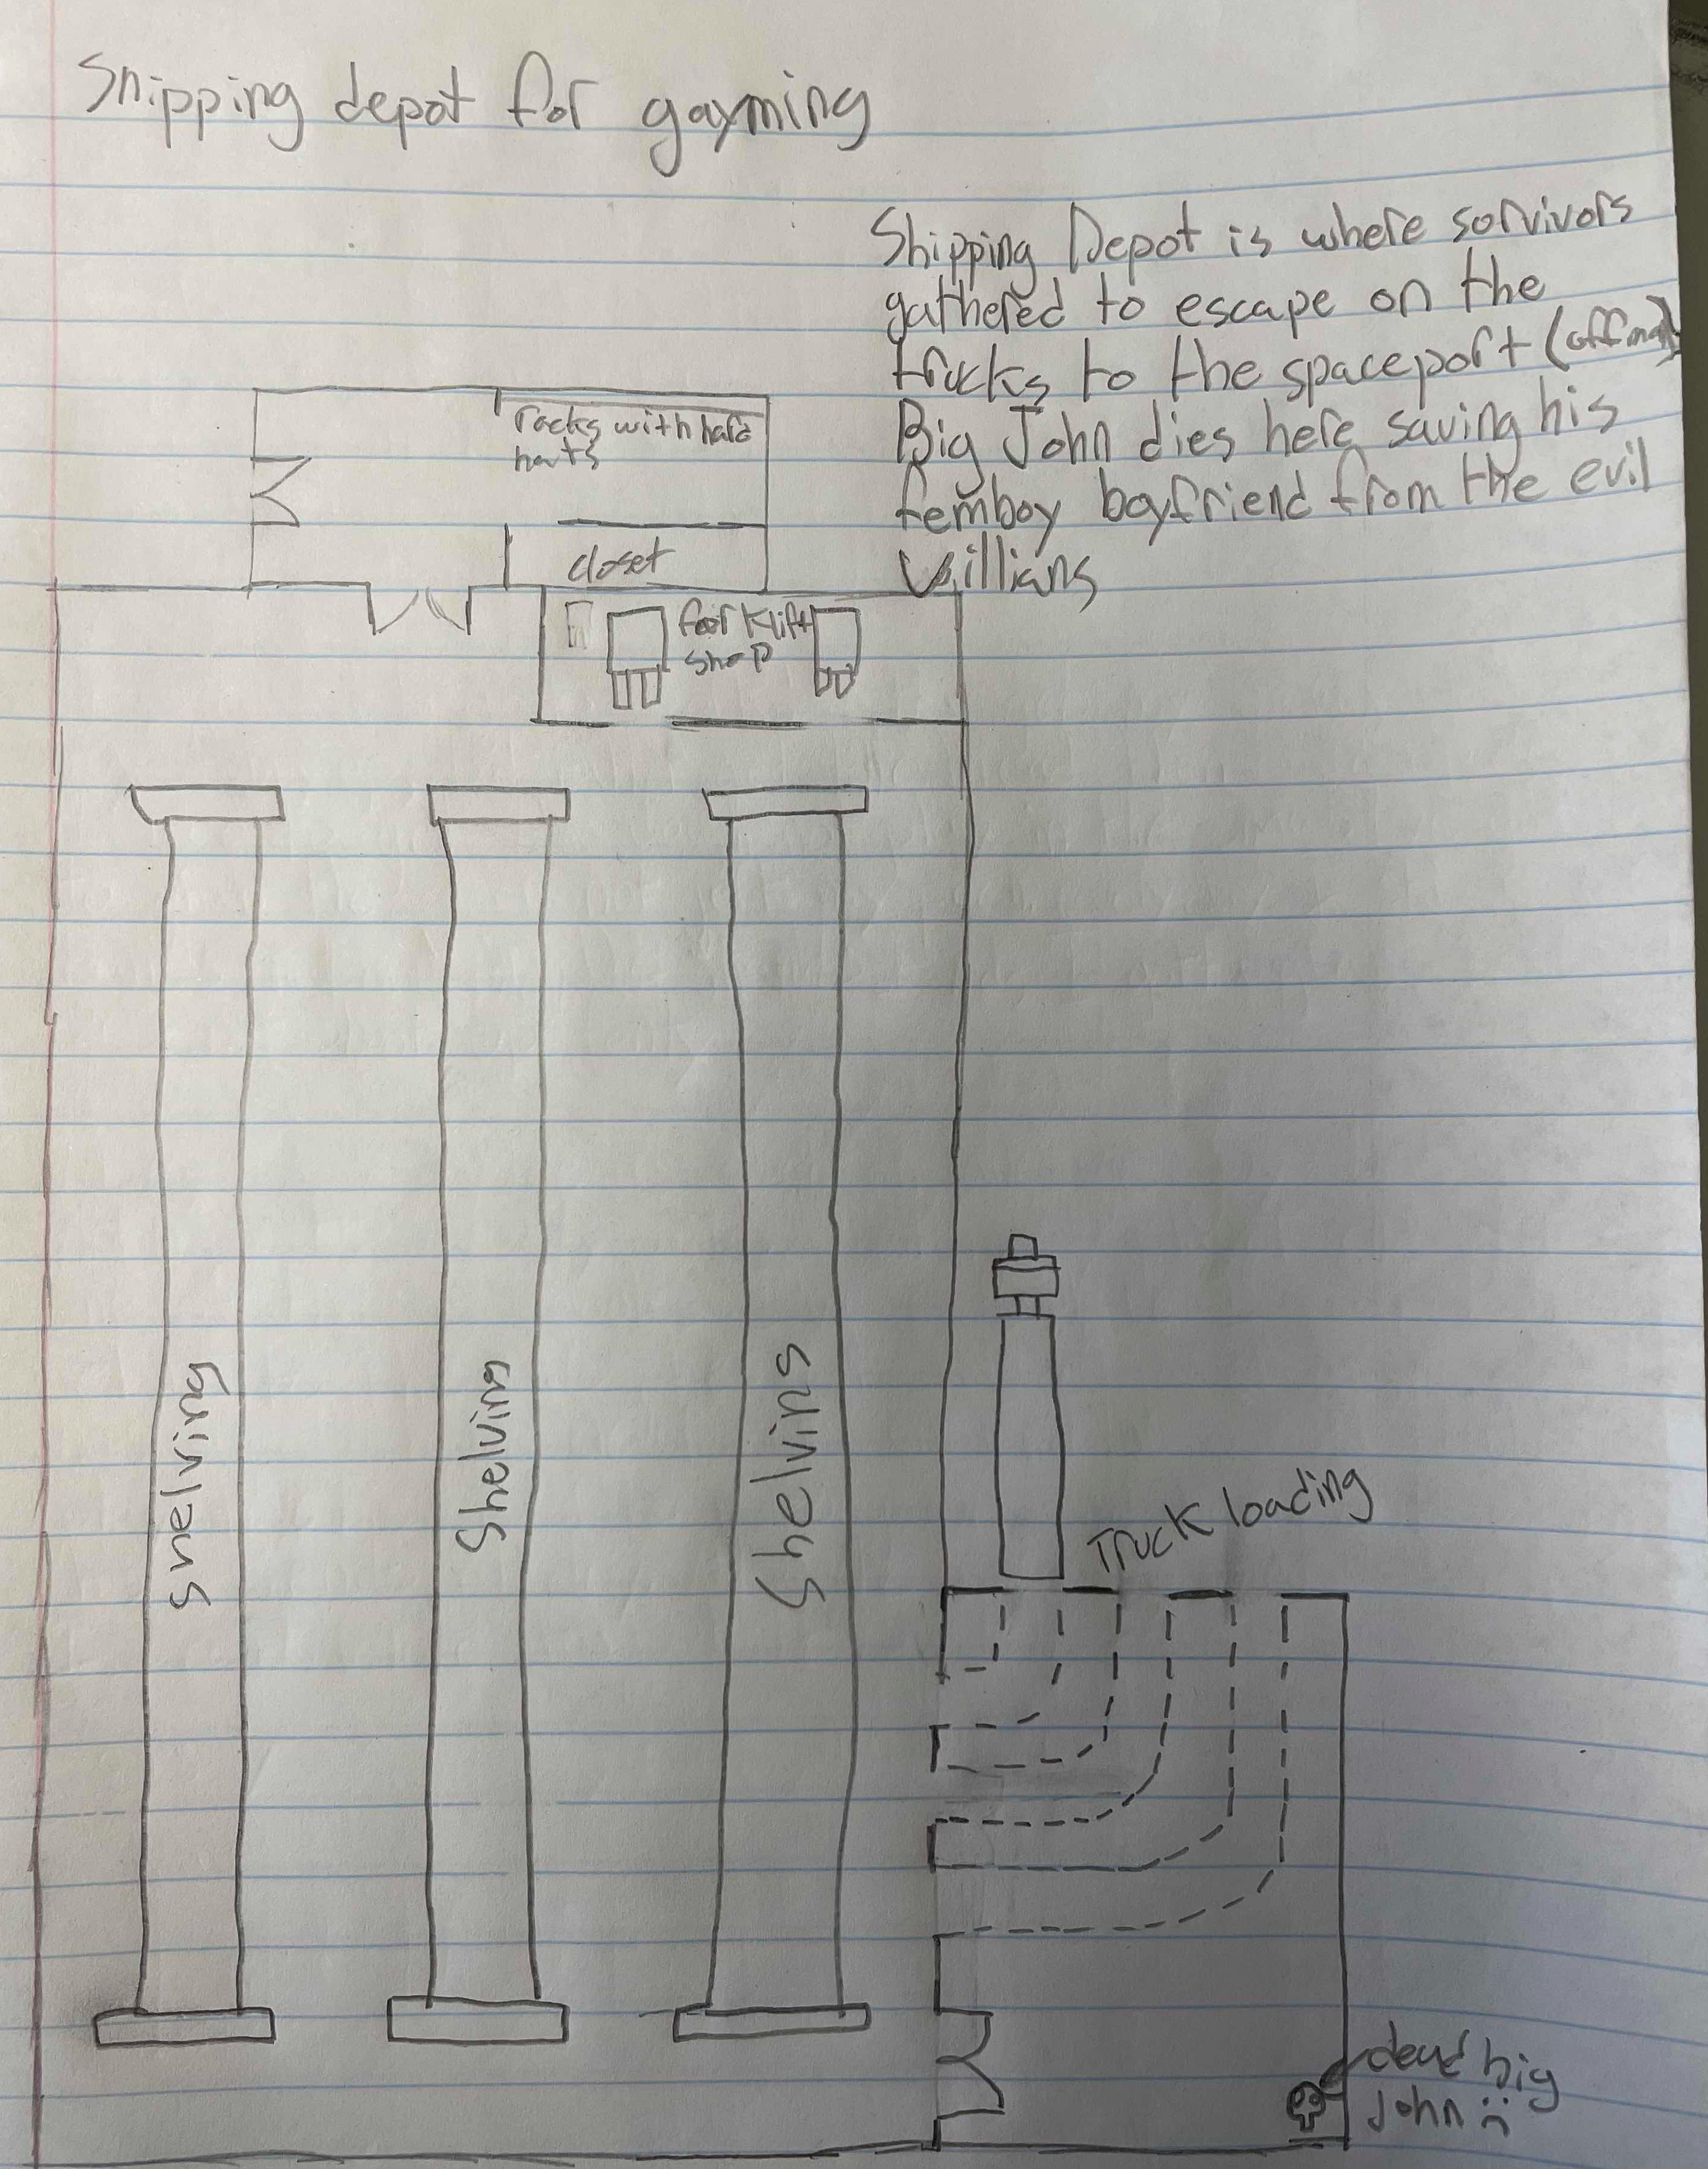 Shipping depot for gayming
Shipping Depot is where sorvivors
gathered to escape on the
trucks to the spaceport (off map)
Big John dies here saving his
femboy boyfriend from the evil
villians
racks with hard
hats
closet
forklift
shop
shelving
Shelving
Shelving
Truck loading
dead big
John :(